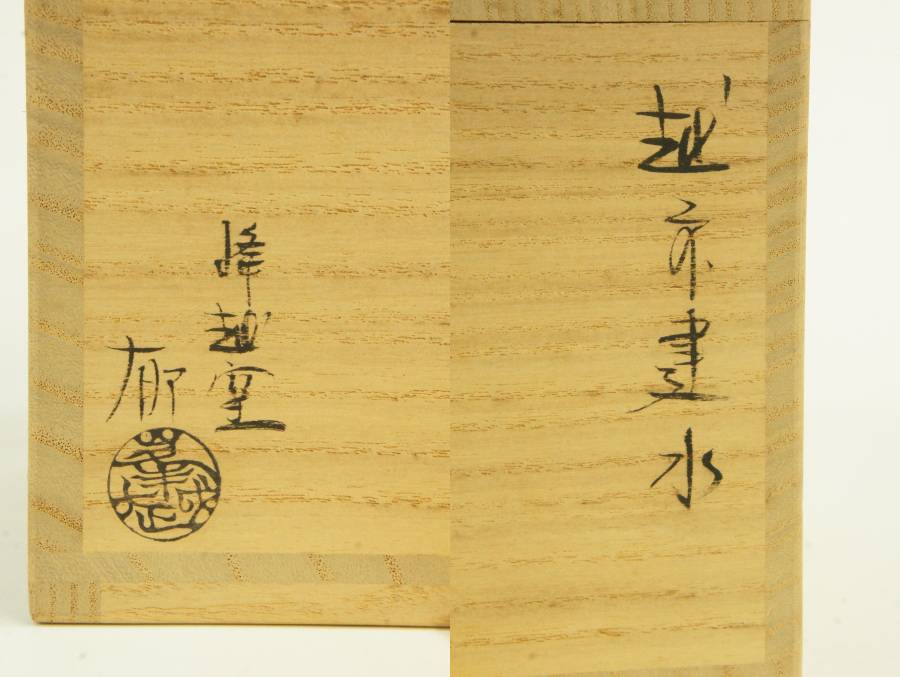 越前建水
峰越窯
郁